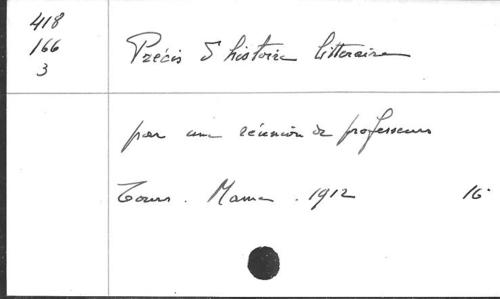 418
166
3
Précis d'histoire littéraire
par une réunion de professeurs
Tours. Mame. 1912 16°